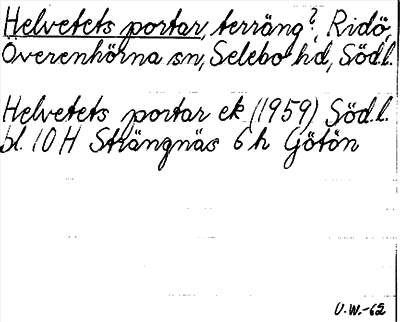 Helvetets portar, terräng?, Ridö,
Överenhörna sn, Selebo hd, Södl.
Helvetets portar ek (1959) Södl.
bl. 10 H Strängnäs 6 h Götön
U.W.-62